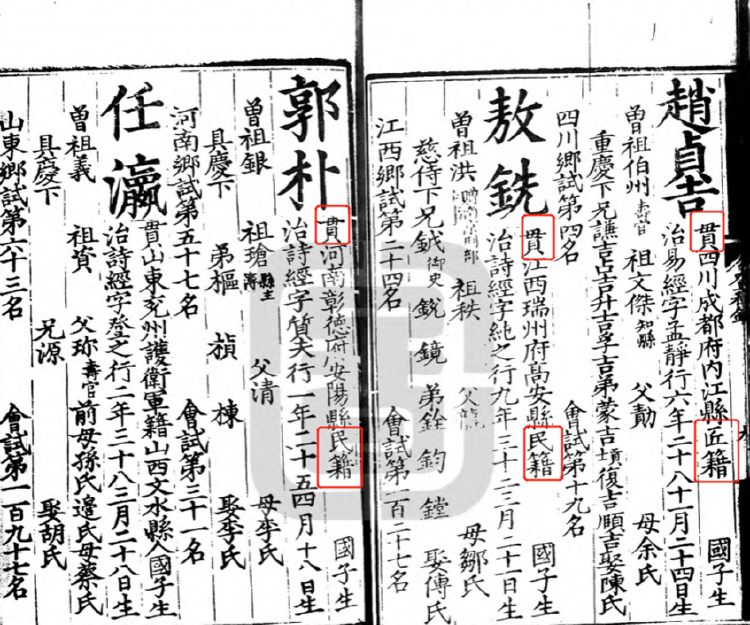 趙貞吉
貫四川成都府內江縣匠籍 國子生
治易經字孟靜行六年二十八十一月二十四日生
曾祖伯州壽官 祖文傑知縣 父勣 母余氏
重慶下兄謙吉 吉升吉孚吉弟蒙吉 復吉頤吉娶陳氏
四川鄉試第四名 會試第十九名
敖銑
貫江西瑞州府高安縣民籍 國子生
治詩經字純之行九年三十二三月二十一日生
曾祖洪 祖秩 父 母鄒氏
慈侍下兄鉞御史 銳 鏡 弟銓 鈞 鏜 娶傅氏
江西鄉試第二十四名 會試第一百二十七名
郭朴
貫河南彰德府安陽縣民籍 國子生
治詩經字質夫行一年二十五四月十八日生
曾祖銀 祖瑲 父清 母李氏
具慶下 弟樞 楨 棟 娶李氏
河南鄉試第五十七名 會試第三十一名
任瀛
貫山東兗州護衛軍籍山西文水縣人國子生
治詩經字登之行二年三十八三月二十八日生
曾祖義 祖資 父珎壽官 前母孫氏邊氏母蔡氏
具慶下 兄源 娶胡氏
山東鄉試第六十三名 會試第一百九十七名